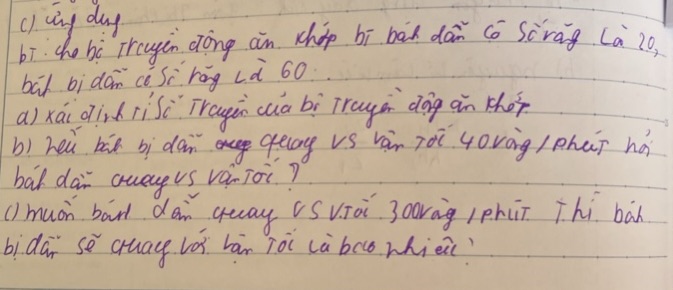 c) ứng dụng
bT: cho bộ Truyền động ăn khớp bị bánh dẫn có Số răng Là 20,
bánh bị dẫn có Số răng Là 60.
a) xác định Tỉ Số Truyền của bị Truyền động ăn khớp
b) nếu bánh bị dẫn quay vs vận Tốc 40 vòng/phút hỏi
bánh dẫn quay vs vận Tốc?
c) muốn bánh dẫn quay vs vTốc 300 vòng/phút Thì bánh
bị dẫn sẽ quay với vận Tốc là bao nhiêu?